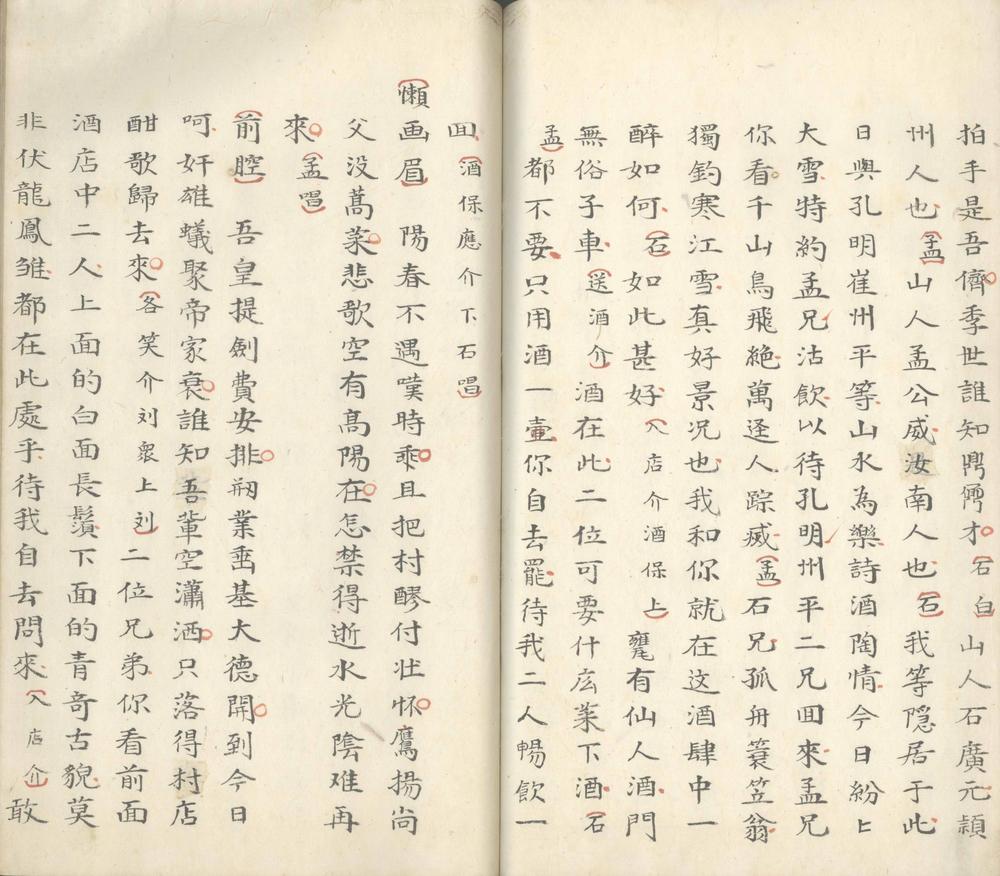 拍手是吾儕季世誰知鼎鼐才石白山人石廣元頴
州人也孟山人孟公威汝南人也石我等隱居于此
日與孔明崔州平等山水為樂詩酒陶情今日紛匕
大雪特約孟兄沽飲以待孔明州平二兄囬來孟兄
你看千山鳥飛絶萬逕人踪滅孟石兄孤舟簑笠翁
獨釣寒江雪真好景况也我和你就在这酒肆中一
醉如何石如此甚好入店介酒保上甕有仙人酒門
無俗子車送酒介酒在此二位可要什庅菜下酒石
孟都不要只用酒一壷你自去罷待我二人暢飲一
囬酒保應介下石唱
懶画眉陽春不遇嘆時乖且把村醪付壮怀鷹揚尚
父没蒿萊悲歌空有高陽在怎禁得逝水光陰难再
來孟唱
前腔吾皇提劍費安排剏業埀基大德開到今日
呵奸雄蟻聚帝家衰誰知吾輩空瀟洒只落得村店
酣歌歸去來各笑介刘衆上刘二位兄弟你看前面
酒店中二人上面的白面長鬚下面的青奇古貌莫
非伏龍鳳雏都在此處乎待我自去問來入店介敢